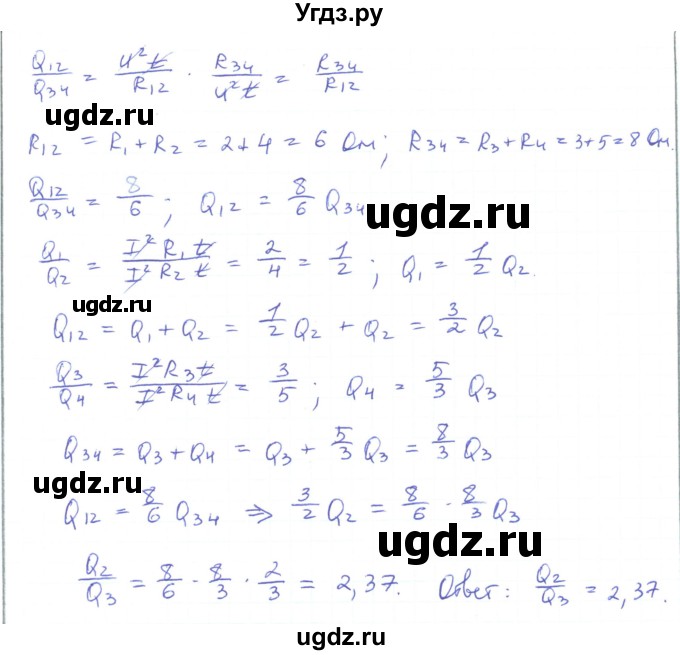 Угдз.ру
Q₁₂/Q₃₄ = U²t/R₁₂ · R₃₄/U²t = R₃₄/R₁₂
ugdz.ru
R₁₂ = R₁ + R₂ = 2 + 4 = 6 Ом; R₃₄ = R₃ + R₄ = 3 + 5 = 8 Ом.
Q₁₂/Q₃₄ = 8/6; Q₁₂ = 8/6 Q₃₄
ugdz.ru
Q₁/Q₂ = I²R₁t/I²R₂t = 2/4 = 1/2; Q₁ = 1/2 Q₂.
ugdz.ru
Q₁₂ = Q₁ + Q₂ = 1/2 Q₂ + Q₂ = 3/2 Q₂
Q₃/Q₄ = I²R₃t/I²R₄t = 3/5; Q₄ = 5/3 Q₃
Q₃₄ = Q₃ + Q₄ = Q₃ + 5/3 Q₃ = 8/3 Q₃
ugdz.ru
Q₁₂ = 8/6 Q₃₄ ⇒ 3/2 Q₂ = 8/6 · 8/3 Q₃
ugdz.ru
Q₂/Q₃ = 8/6 · 8/3 · 2/3 = 2,37. Ответ: Q₂/Q₃ = 2,37.
ugdz.ru